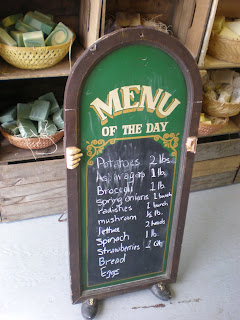 MENU
OF THE DAY
Potatoes 2 lbs.
Asparagus 1 lb.
Broccoli 1 lb
Spring Onions 1 bunch
radishes 1 bunch
mushroom ½ lb
lettuce 2 heads
Spinach 1 lb.
Strawberries 1
Bread
Eggs